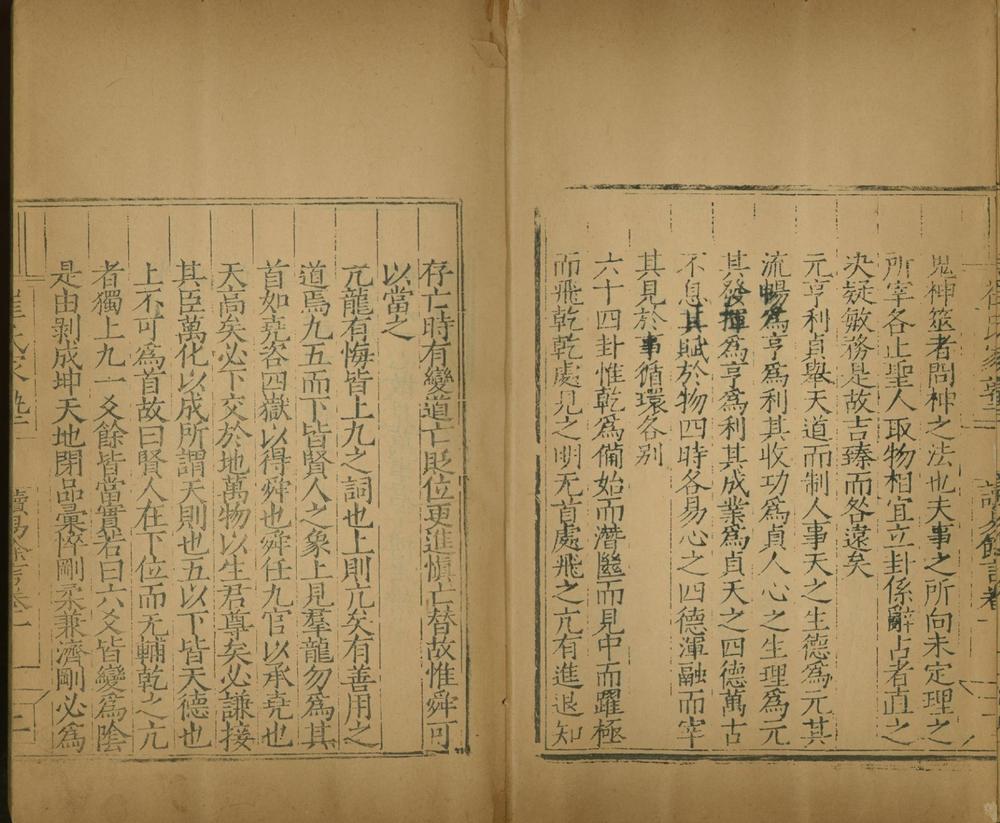 鬼神筮者問神之法也夫事之所向未定理之
所宰各止聖人取物相宜立卦係辭占者直之
决疑敏務是故吉臻而咎遠矣
元亨利貞舉天道而制人事天之生德爲元其
流暢爲亨爲利其收功爲貞人心之生理爲元
其發揮爲亨爲利其成業爲貞天之四德萬古
不息其賦於物四時各易心之四德渾融而宰
其見於事循環各別
六十四卦惟乾爲備始而潛繼而見中而躍極
而飛乾乾處見之明无首處飛之亢有進退知
存亡時有變道亡貶位更進愼亡替故惟舜可
以當之
亢龍有悔皆上九之詞也上則亢矣有善用之
道焉九五而下皆賢人之象上見羣龍勿爲其
首如堯咨四嶽以得舜也舜任九官以承堯也
天高矣必下交於地萬物以生君尊矣必謙接
其臣萬化以成所謂天則也五以下皆天德也
上不可爲首故曰賢人在下位而无輔乾之亢
者獨上九一爻餘皆當實若曰六爻皆變爲陰
是由剥成坤天地閉品彙悴剛柔兼濟剛必爲
讀易餘言卷一
二